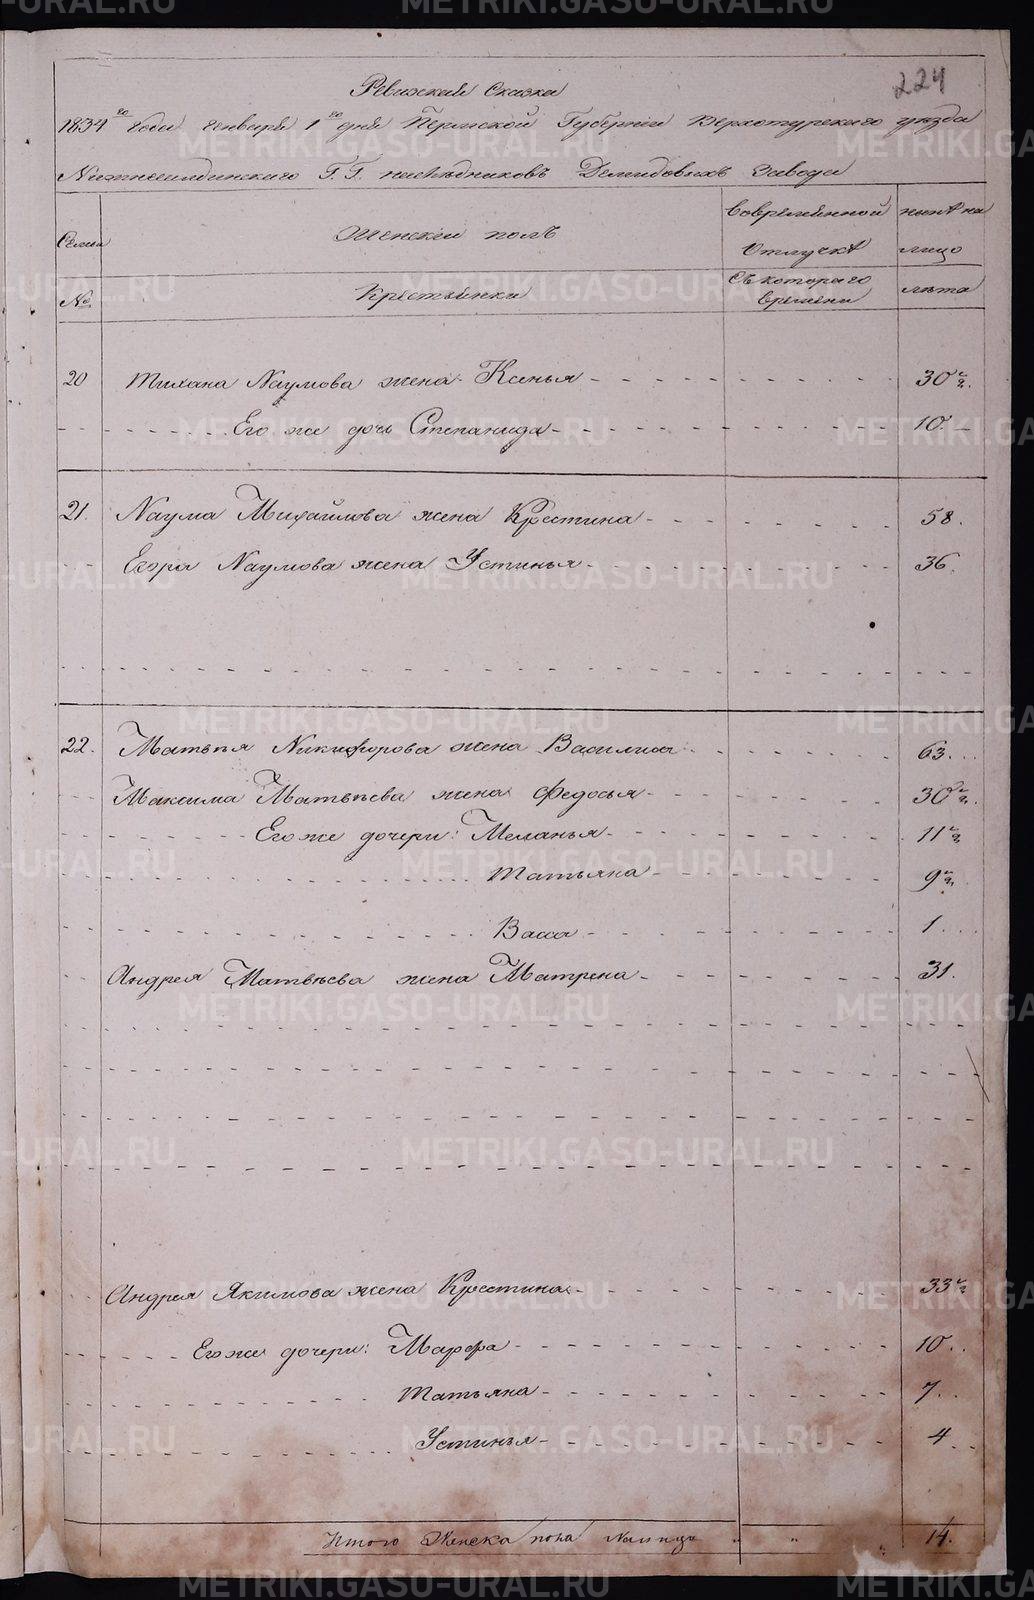 224
Ревижская Сказка
1834го года генваря 1го дня Пермской Губернiи Верхотурскаго уѣзда
Нижнесалдинскаго Г.Г. наслѣдниковъ Демидовыхъ Завода
Семьи Женскiй полъ Вовременной Отлучкѣ нынѣ на лицо
№ Крестьянки Съ котораго времени лѣта
20 Тихана Наумова жена Ксенья 30 ½.
Его же дочь Степанида 10.
21. Наума Михайлова жена Крестина 58.
Егора Наумова жена Устинья 36.
22. Матвѣя Никифорова жена Василиса 63.
Максима Матвѣева жена Федосья 30 ½.
Его же дочери: Меланья 11 ½
Татьяна 9 ½.
Васса 1.
Андрея Матвѣева жена Матрена 31.
Андрея Якимова жена Крестина 33 ½
Его же дочери: Марфа 10.
Татьяна 7.
Устинья 4
Итого Женска пола Налицо " " " 14.
METRIKI.GASO-URAL.RU